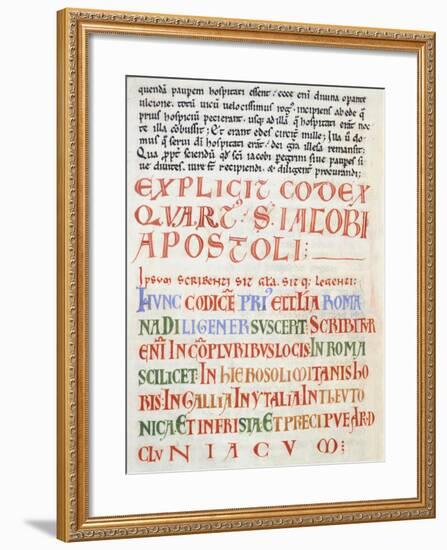 quendā paupem hospitari essent; ecce eni diuina opante
ulcione. totū uicū uelocissimus rog9. incipiens ab ede q
prius hospiciū pecierant. usq; ad illā q hospitati erant noc
te illa cōbussit; Et erant edes circit mille; Illa ū do
mus q serui dī hospitati erant. dei gra illesa remansit;
Qua ppt sciendū qd sci iacobi pegrini siue paupes si
ue diuites. iure st recipiendi. & diligent procurandi;
EXPLICIT CODEX
QUART9. S. IACOBI
APOSTOLI:
Ipsum scribenti sit gla. sit q; legenti:
HUNC CODICĒ PRI9 ECCLIA ROMA
NA DILIGENER SUSCEPT: SCRIBITUR
ENĪ IN CŌPLURIBUS LOCIS: IN ROMA
SCILICET: IN HIEROSOLIMITANIS HO
RIS: IN GALLIA IN YTALIA IN THEUTO
NICA ET IN FRISIA: ET PRECIPUE APD
CLUNIACUM: